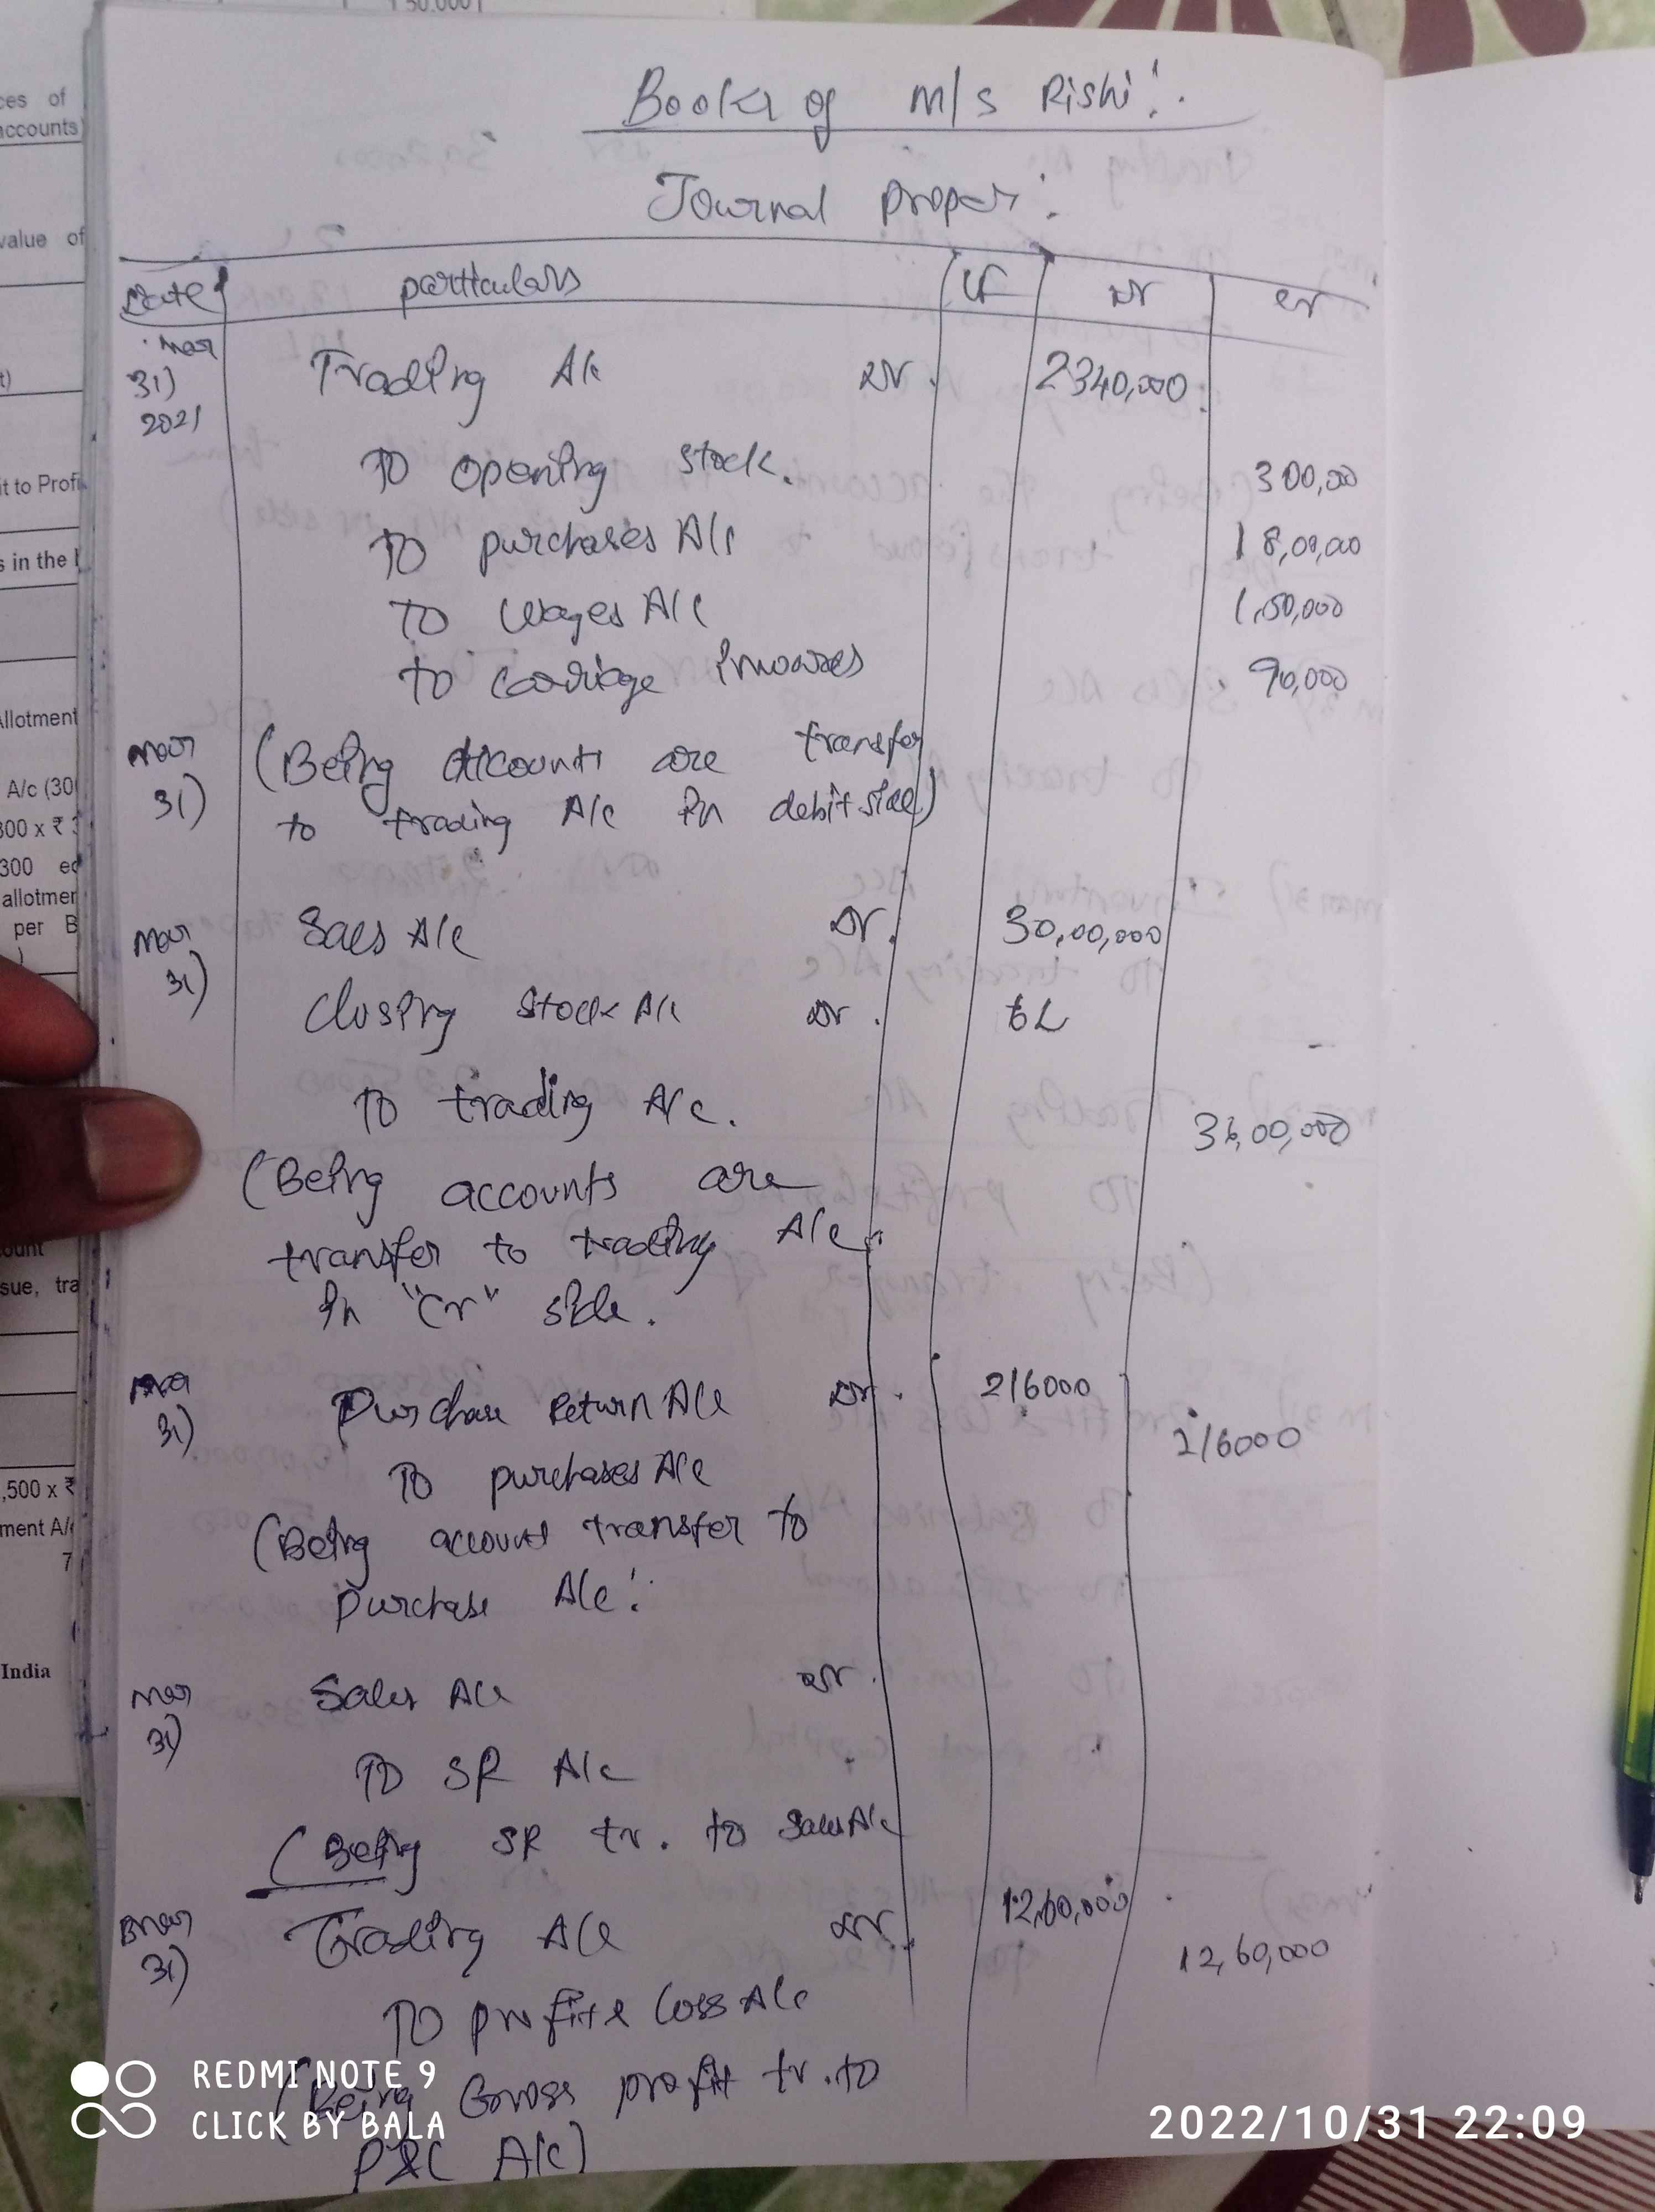 50,000
ces of
accounts)
value of
t)
it to Profi
s in the
Allotment
A/c (30
300 x ₹ 3
300 eq
allotmen
per B
)
ount
sue, tra
,500 x ₹
ment A/c
7
India
Books of M/s Rishi!.
Journal proper:
Date particulars LF Dr Cr
Mar 31) 2021 Trading A/c Dr. 2340,000
To opening stock. 300,00
To purchases A/c 18,00,00
To wages A/c 1,50,000
to carriage inwards 90,000
Mar 31) (Being accounts are transfer
to trading A/c in debit side)
Mar 31) Saes A/c Dr. 30,00,000
Closing stock A/c Dr. 6L
To trading A/c. 36,00,000
(Being accounts are
transfer to trading A/c
in "Cr" side.
Mar 31) Purchase Return A/c Dr. 216000
To purchases A/c 216000
(Being account transfer to
purchase A/c!.
Mar 31) Sales A/c Dr.
To SR A/c
(Being SR tr. to Sales A/c
Mar 31) Trading A/c Dr. 12,60,000
To profit & loss A/c 12,60,000
(Being Gross profit tr. to
P&L A/c)
REDMI NOTE 9
CLICK BY BALA
2022/10/31 22:09